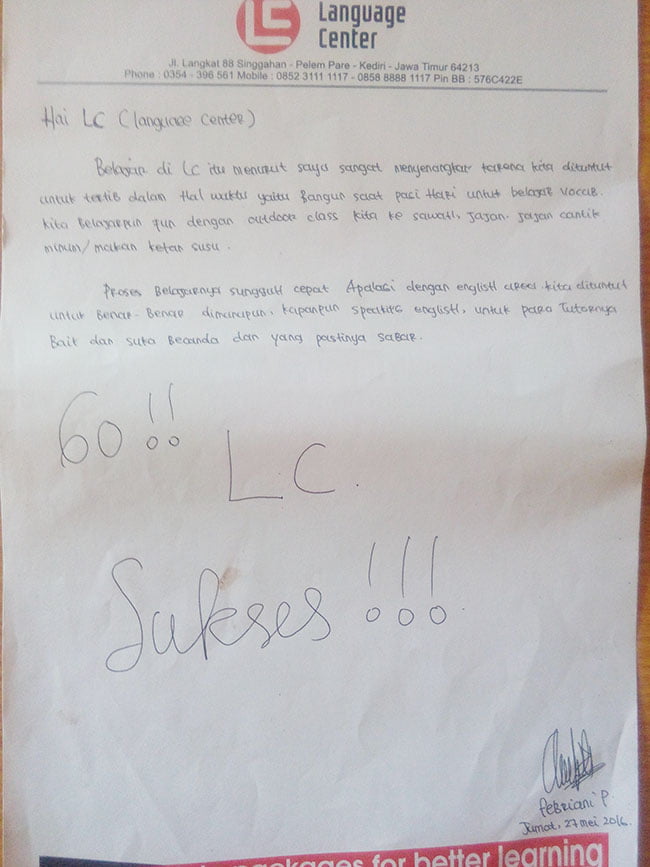 LC
Language
Center
Jl. Langkat 88 Singgahan - Pelem Pare - Kediri - Jawa Timur 64213
Phone : 0354 - 396 561 Mobile : 0852 3111 1117 - 0858 8888 1117 Pin BB : 576C422E
Hai LC (Language Center)
Belajar di LC itu menurut saya sangat menyenangkan karena kita dituntut
untuk tertib dalam Hal waktu yaitu Bangun saat pagi Hari untuk belajar vocab.
kita Belajarpun fun dengan outdoor class kita ke sawah, jajan-jajan cantik
minum/makan ketan susu.
Proses Belajarnya sungguh cepat Apalagi dengan english area kita dituntut
untuk Benar-Benar dimanapun, kapanpun speaking english, untuk para Tutornya
Baik dan suka Becanda dan yang pastinya sabar.
GO !!
LC.
Sukses !!!
Febriani P.
Jumat, 27 mei 2016.
packages for better learning